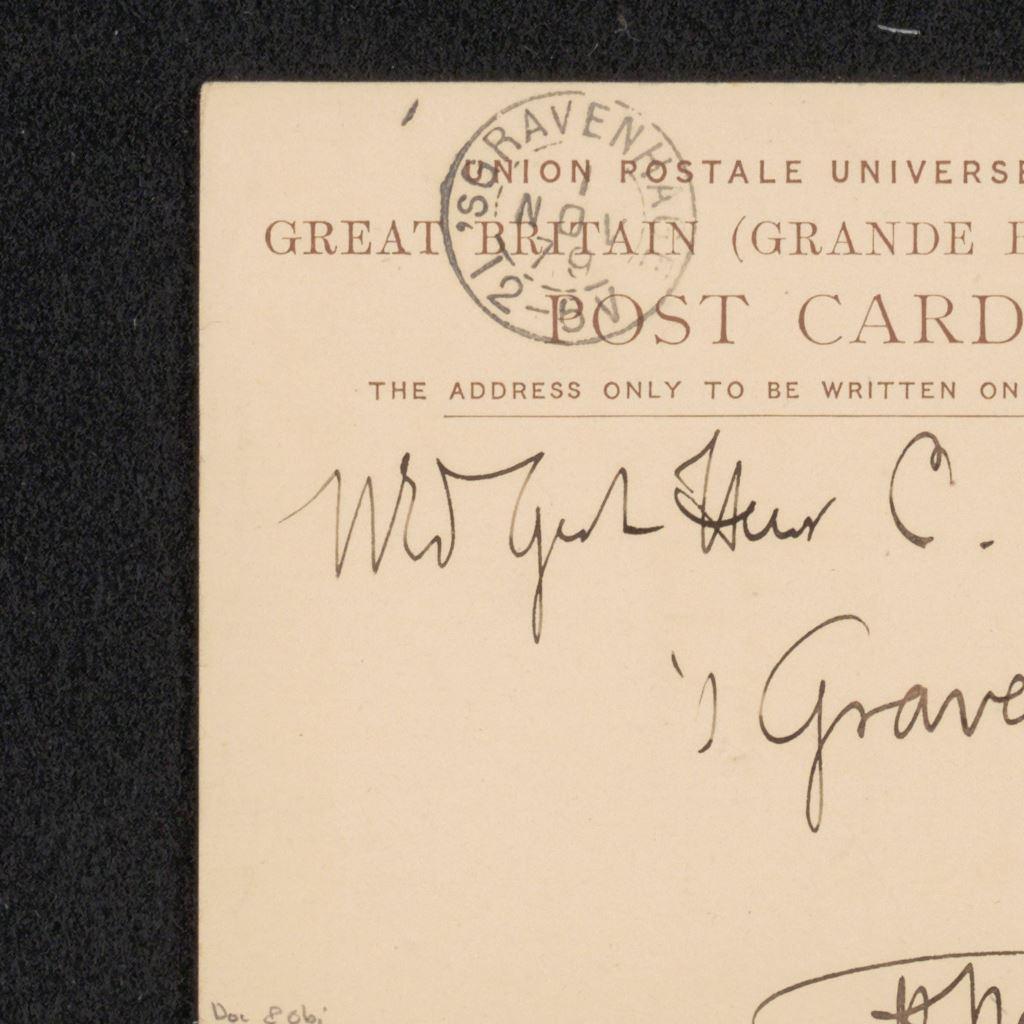 'SGRAVENHAGE
1
NOV
79
12-5N
UNION POSTALE UNIVERSE
GREAT BRITAIN (GRANDE B
POST CARD
THE ADDRESS ONLY TO BE WRITTEN ON
WEd Gest Heer C.
's Grave